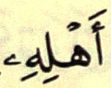 أَهْلِهِۦ